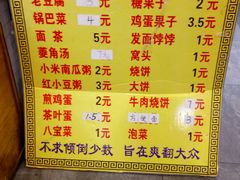 老豆腐 3元 糖果子 2元
锅巴菜 4元 鸡蛋果子 3.5元
面茶 5元 发面饽饽 1元
菱角汤 元 窝头 1元
小米南瓜粥 2元 烧饼 1元
红小豆粥 3元 大饼 1元
煎鸡蛋 2元 牛肉烧饼 9元
茶叶蛋 1.5元 方便面 3元
八宝菜 1元 泡菜 1元
不求倾倒少数 旨在爽翻大众